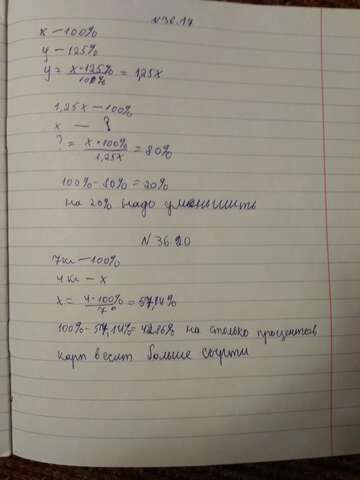 N 36.17
x — 100%
y — 125%
y = x·125% / 100% = 1,25x
1,25x — 100%
x — ?
? = x·100% / 1,25x = 80%
100% - 80% = 20%
на 20% надо уменьшить
N 36.20
7кг — 100%
4кг — x
x = 4·100% / 7 = 57,14%
100% - 57,14% = 42,86% на столько процентов
карп весит больше